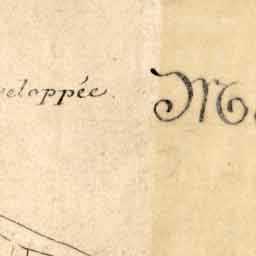 veloppée
M